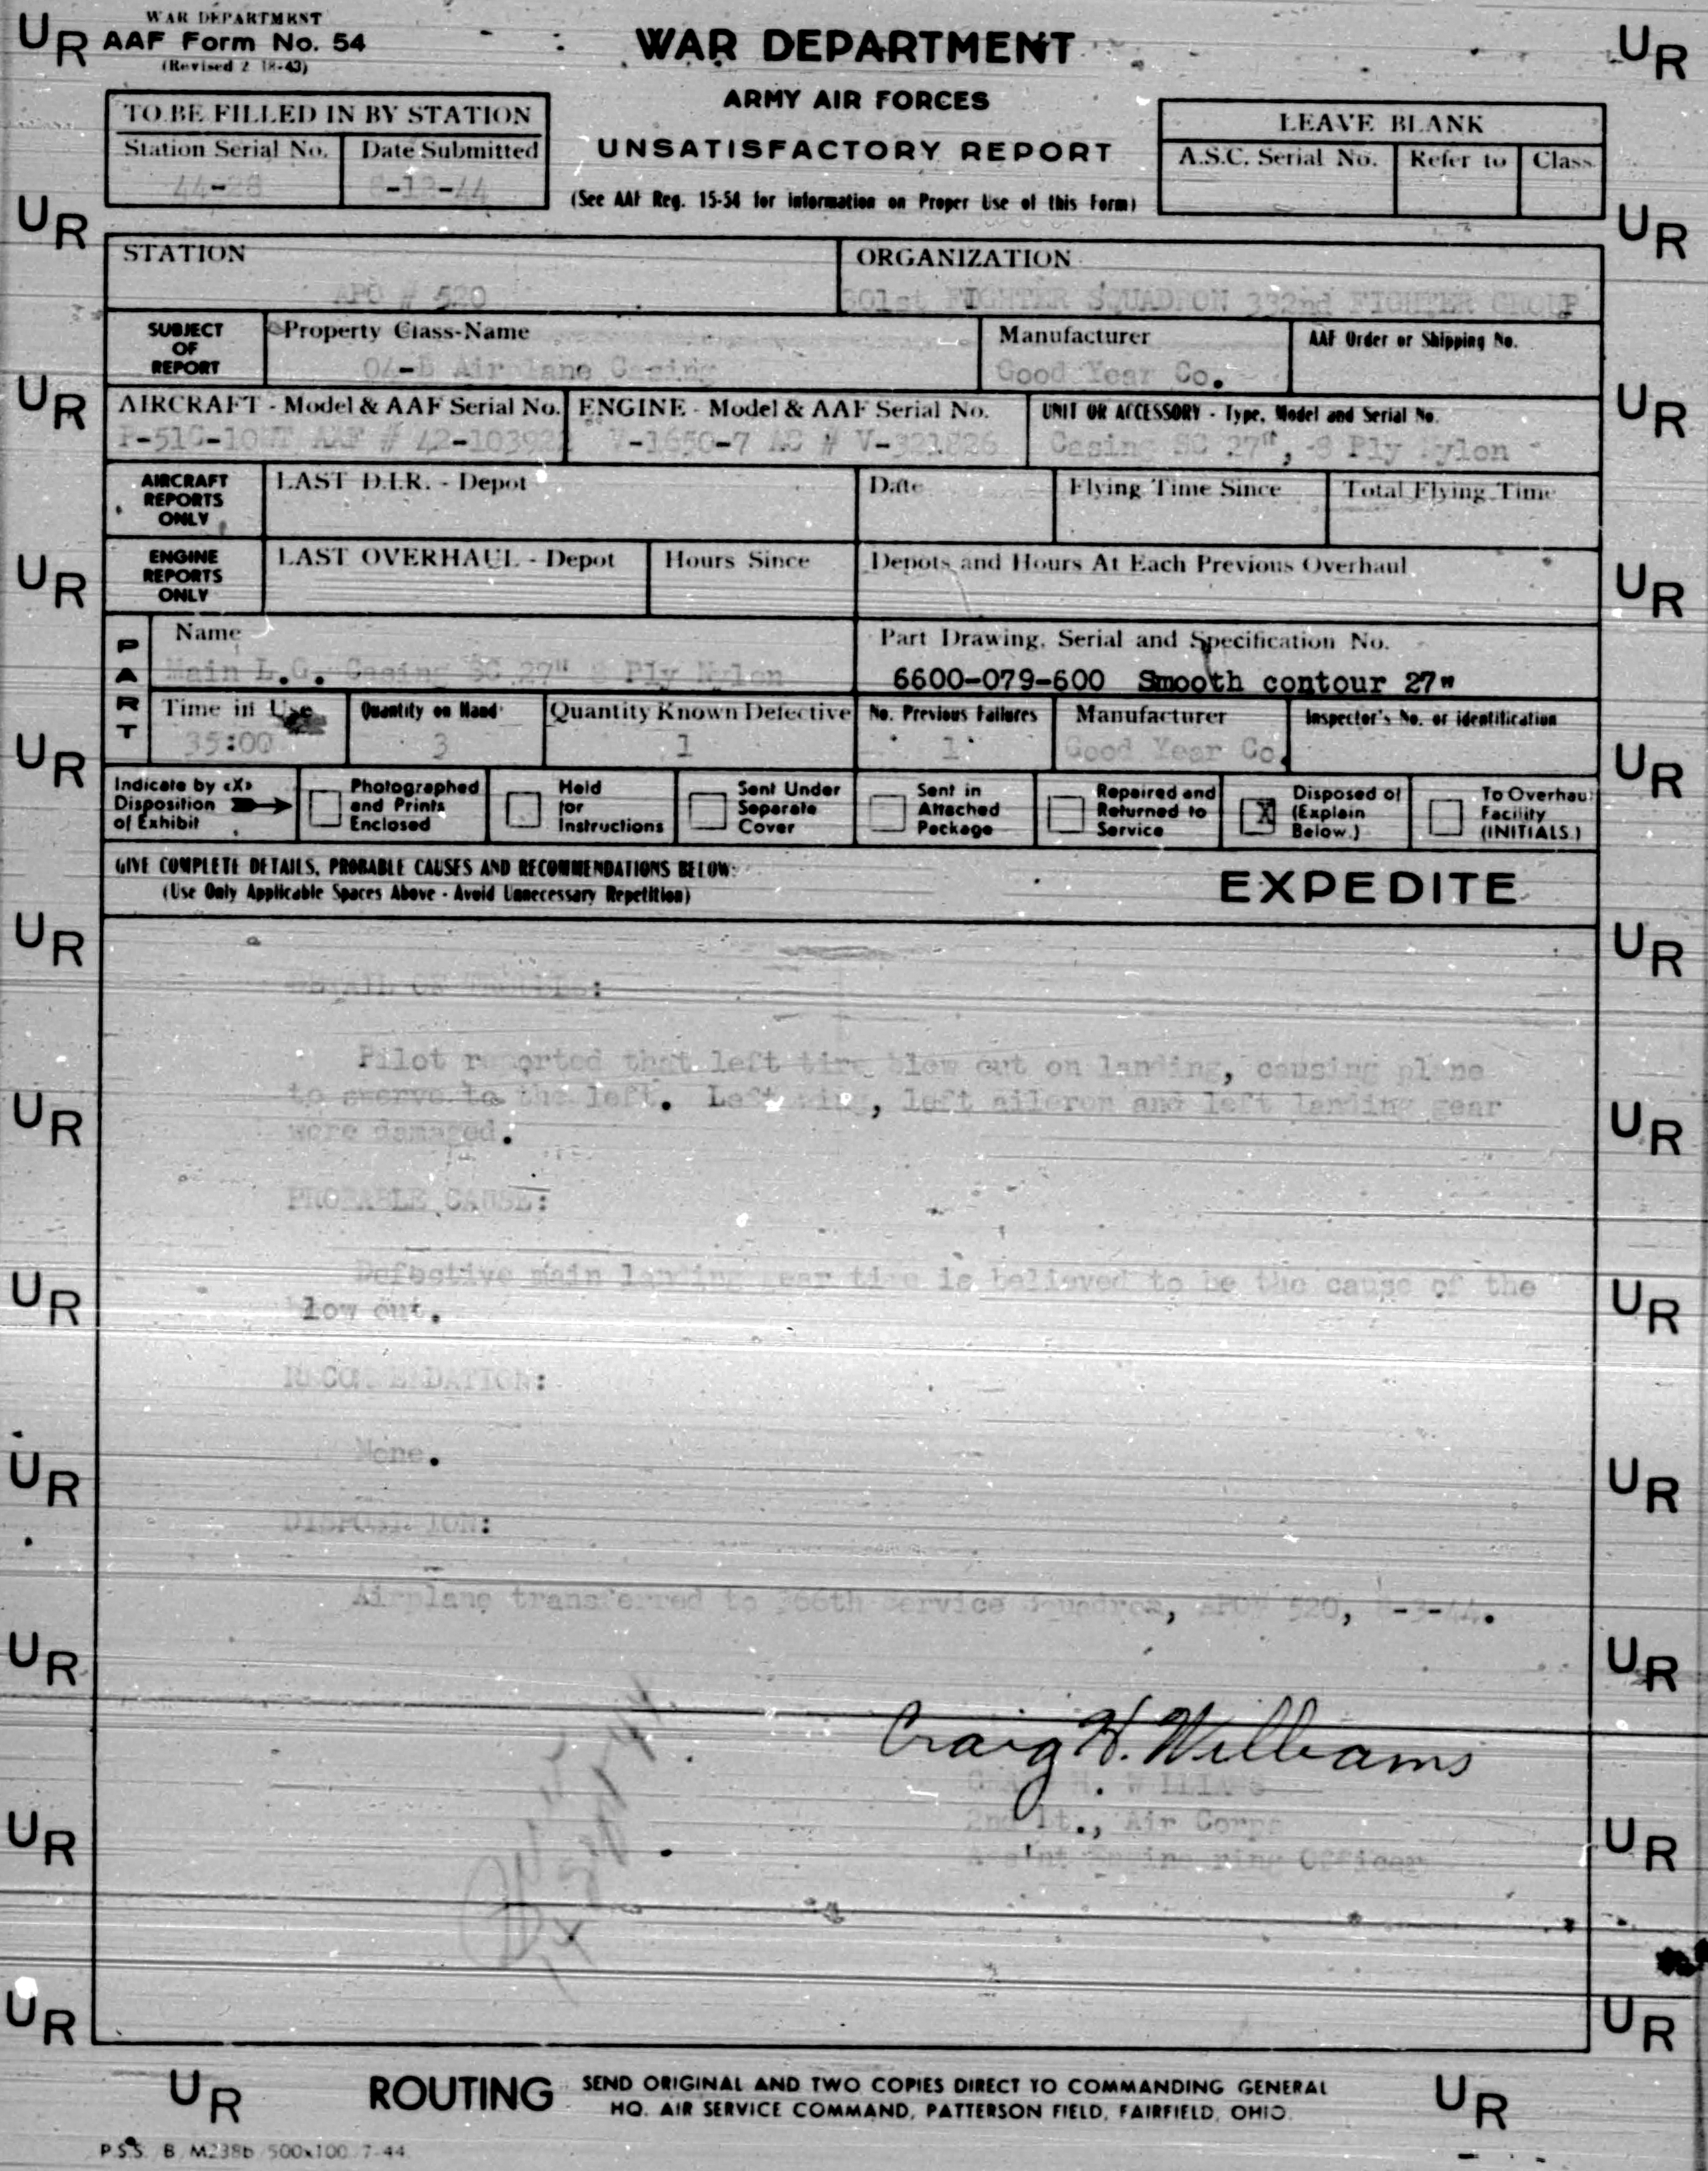 WAR DEPARTMENT
AAF Form No. 54
(Revised 2-18-43)
WAR DEPARTMENT
ARMY AIR FORCES
UNSATISFACTORY REPORT
(See AAF Reg. 15-54 for Information on Proper Use of this Form)
TO BE FILLED IN BY STATION
Station Serial No. Date Submitted
LEAVE BLANK
A.S.C. Serial No. Refer to Class
STATION
APO # 520
ORGANIZATION
301st FIGHTER SQUADRON 332nd FIGHTER GROUP
SUBJECT OF REPORT
Property Class-Name
Airplane Casing
Manufacturer
Good Year Co.
AAF Order or Shipping No.
AIRCRAFT - Model & AAF Serial No.
P-51C-10NT AAF #
ENGINE - Model & AAF Serial No.
V-1650-7 AC # V-321826
UNIT OR ACCESSORY - Type, Model and Serial No.
Casing SC 27", 8 Ply Nylon
AIRCRAFT REPORTS ONLY
LAST D.I.R. - Depot Date Flying Time Since Total Flying Time
ENGINE REPORTS ONLY
LAST OVERHAUL - Depot Hours Since Depots and Hours At Each Previous Overhaul
PART
Name
Main L.G. Casing SC 27" 8 Ply Nylon
Part Drawing, Serial and Specification No.
6600-079-600 Smooth contour 27"
Time in Use
35:00
Quantity on Hand
3
Quantity Known Defective
1
No. Previous Failures
1
Manufacturer
Good Year Co.
Inspector's No. or identification
Indicate by «X» Disposition of Exhibit
Photographed and Prints Enclosed
Held for Instructions
Sent Under Separate Cover
Sent in Attached Package
Repaired and Returned to Service
X Disposed of (Explain Below.)
To Overhaul Facility (INITIALS.)
GIVE COMPLETE DETAILS, PROBABLE CAUSES AND RECOMMENDATIONS BELOW:
(Use Only Applicable Spaces Above - Avoid Unnecessary Repetition)
EXPEDITE
DETAIL OF TROUBLE:
Pilot reported that left tire blew out on landing, causing plane
to swerve to the left. Left wing, left aileron and left landing gear
were damaged.
PROBABLE CAUSE:
Defective main landing gear tire is believed to be the cause of the
blow out.
RECOMMENDATION:
None.
DISPOSITION:
Airplane transferred to 366th Service Squadron, APO# 520, 8-3-44.
Craig H. Williams
CRAIG H. WILLIAMS
2nd Lt., Air Corps
Ass'nt Engineering Officer
ROUTING
SEND ORIGINAL AND TWO COPIES DIRECT TO COMMANDING GENERAL
HQ. AIR SERVICE COMMAND, PATTERSON FIELD, FAIRFIELD, OHIO.
UR
P.S.S. B M238b 500x100 7-44